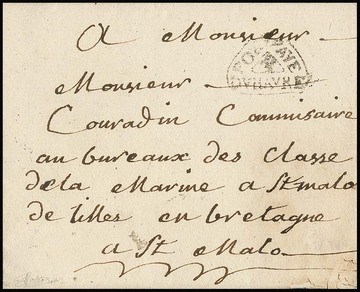 A Monsieur
Monsieur
Couradin Commisaire
au bureaux des Classe
de la Marine a St malo
de lilles en bretagne
a St Malo
PORT PAYE
DU HAVRE